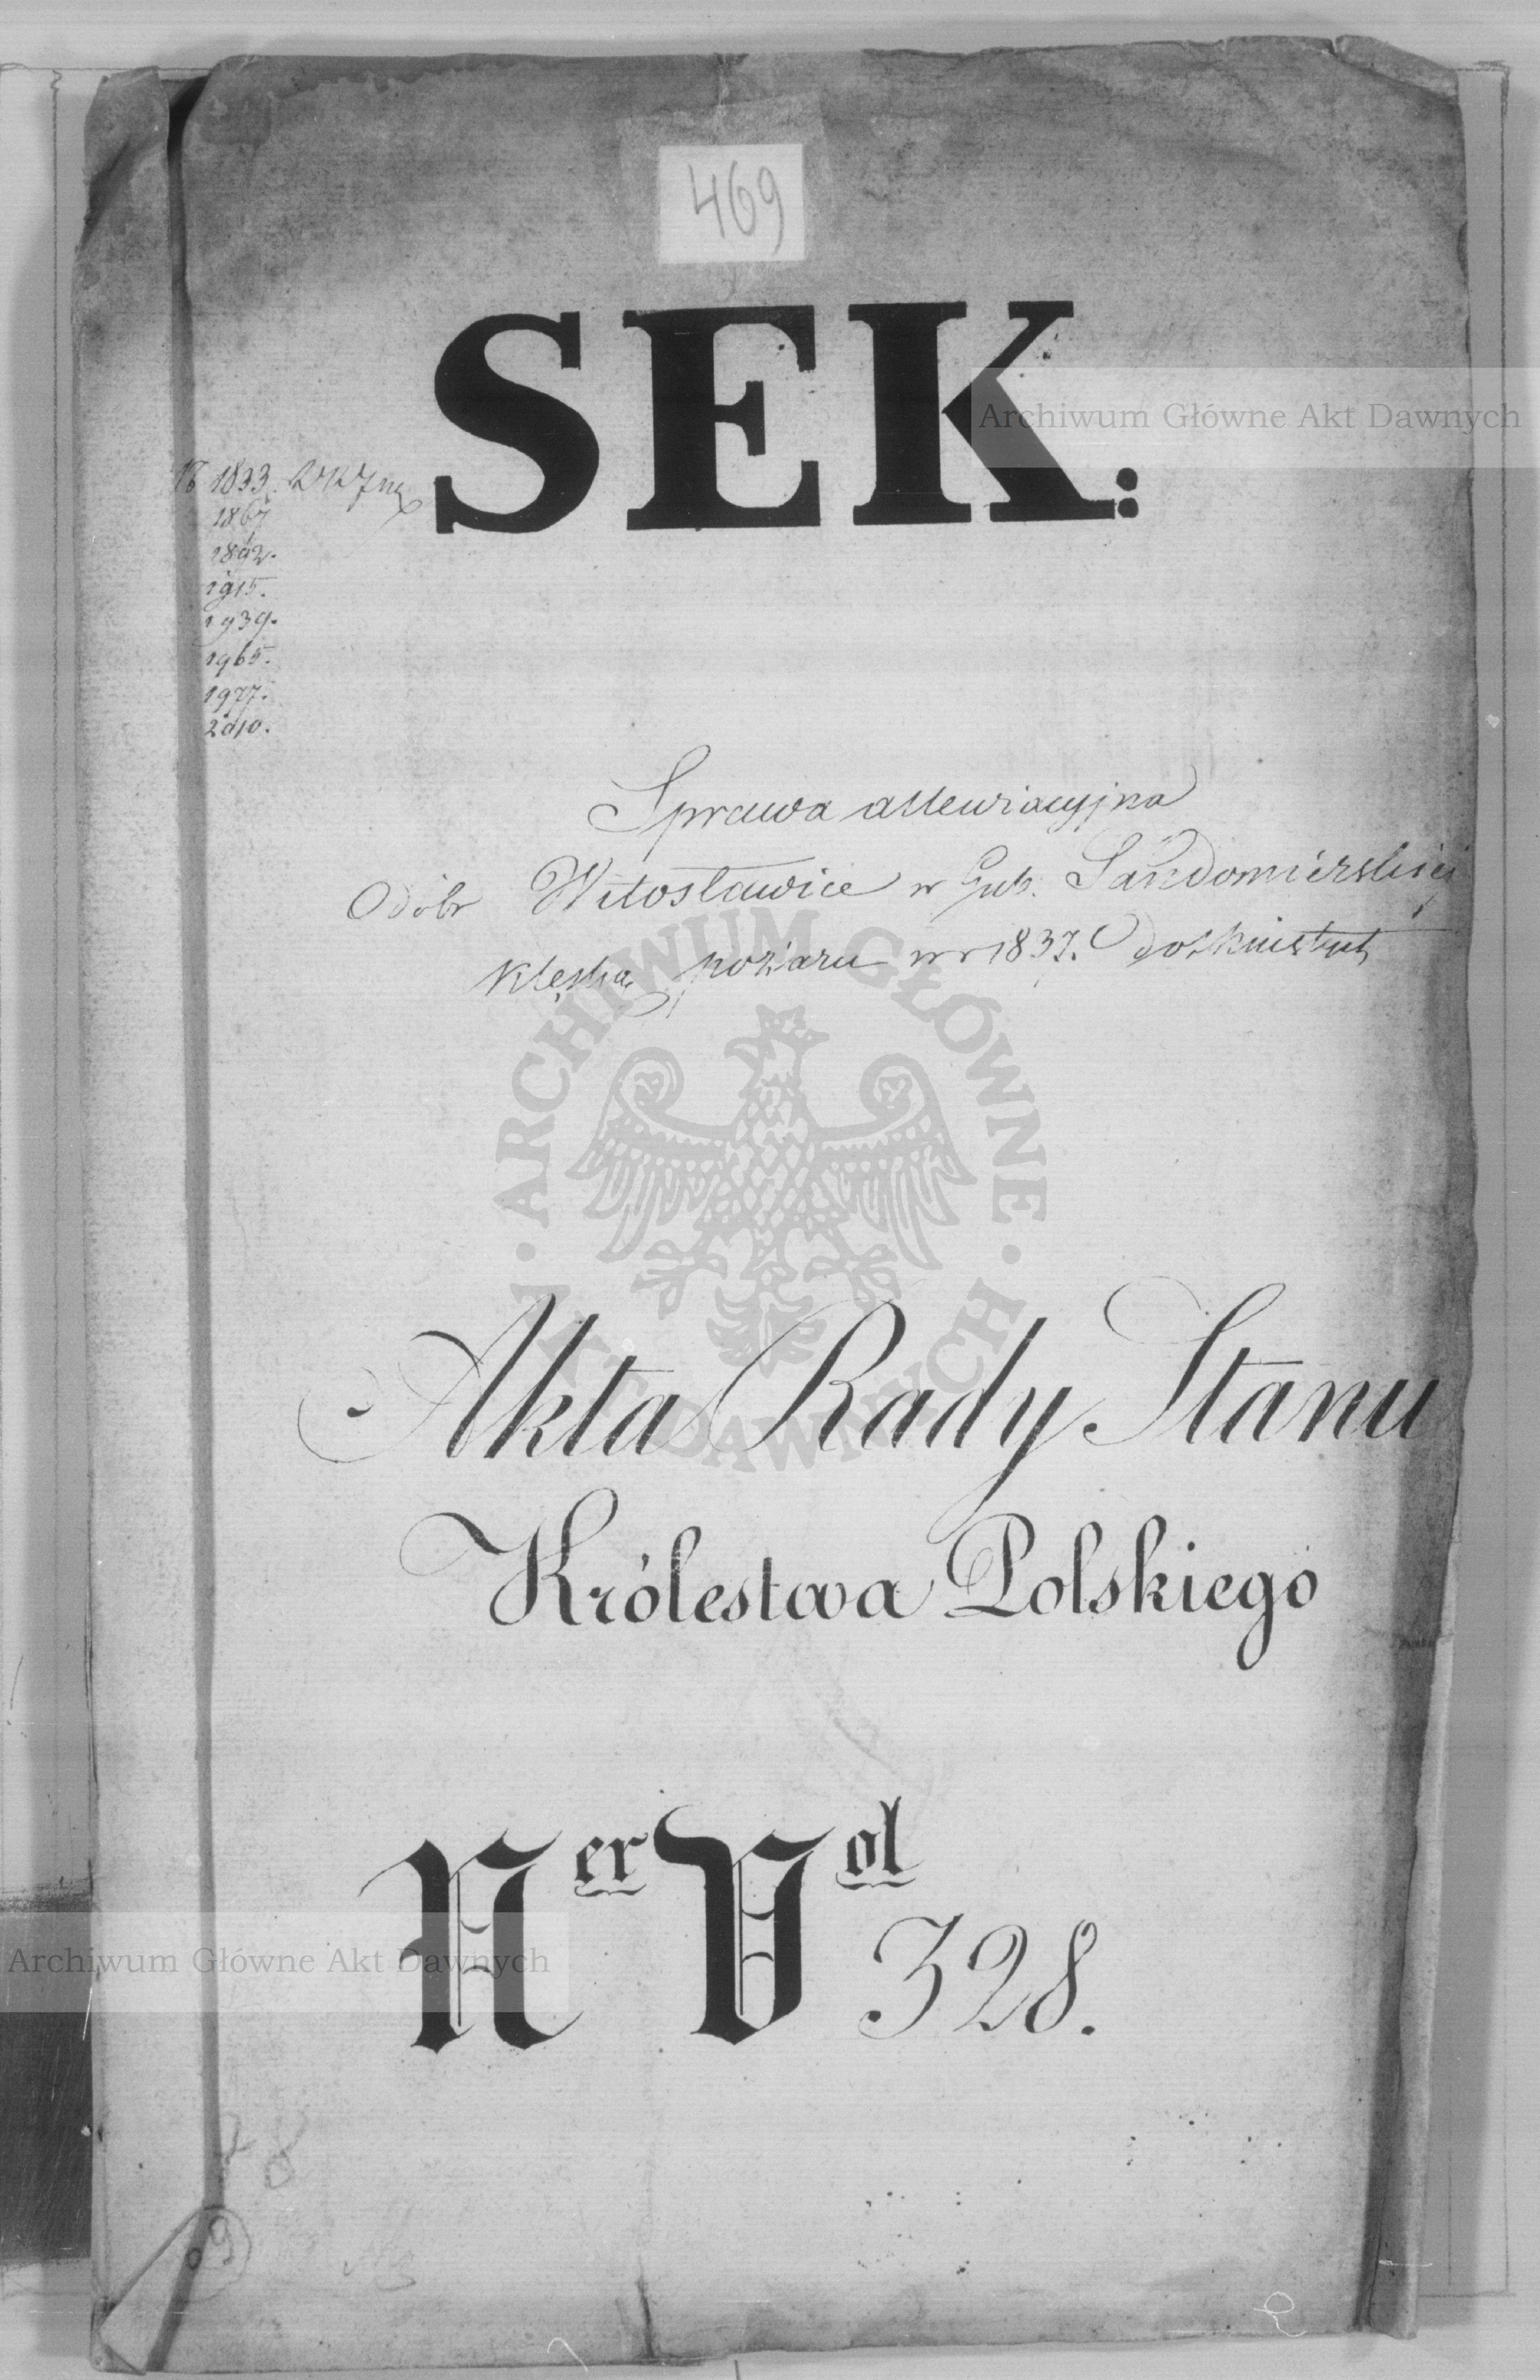 469
SEK:
Archiwum Główne Akt Dawnych
1833.
1867
1892.
1915.
1939.
1965.
1977.
2010.
Sprawa allewiacyjna
Dóbr Witosławice w Gub. Sandomierskiej
klęską pożaru w r 1837. dotkniętych
ARCHIWUM GŁÓWNE AKT DAWNYCH
Akta Rady Stanu
Królestwa Polskiego
Ner Vol 328.
Archiwum Główne Akt Dawnych
78
9